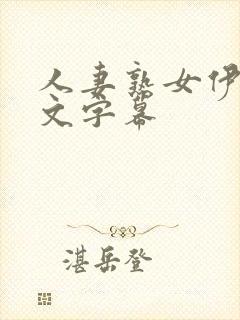 人妻熟女伊
文字幕
湛岳登